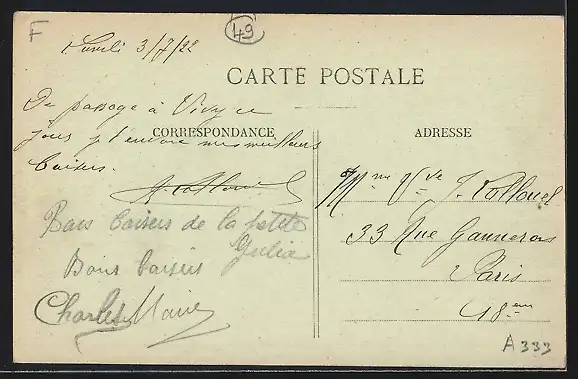 F
49
Lundi 3/7/22
CARTE POSTALE
De passage à Vivy ce
jour je t'envoie mes meilleurs
baisers.
CORRESPONDANCE
ADRESSE
Bons baisers de la petite
Julia
Bons baisers
Charles Marie
Mme Vve J.
33 Rue Ganneron
Paris
18 em
A333